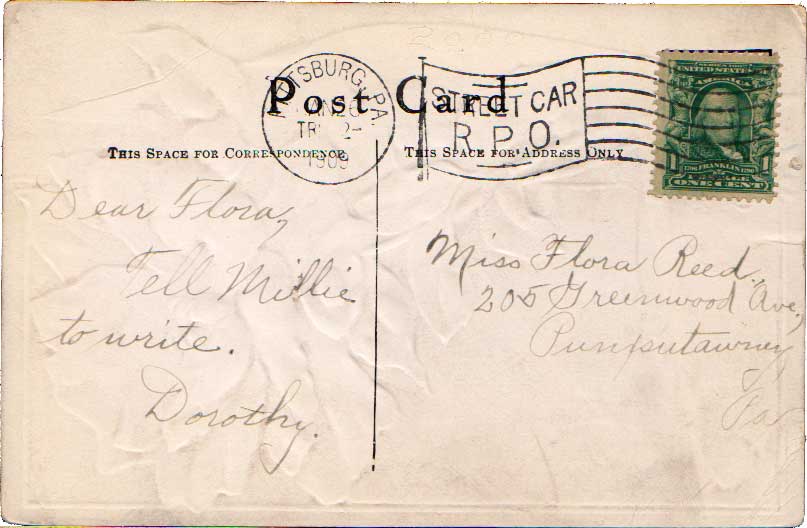 Post Card
PITTSBURG, PA.
1909
STREET CAR
R.P.O.
UNITED STATES
1 FRANKLIN 1
ONE CENT
THIS SPACE FOR CORRESPONDENCE
THIS SPACE FOR ADDRESS ONLY
Dear Flora,
Tell Millie
to write.
Dorothy.
Miss Flora Reed.
205 Greenwood Ave,
Punxutawney
Pa